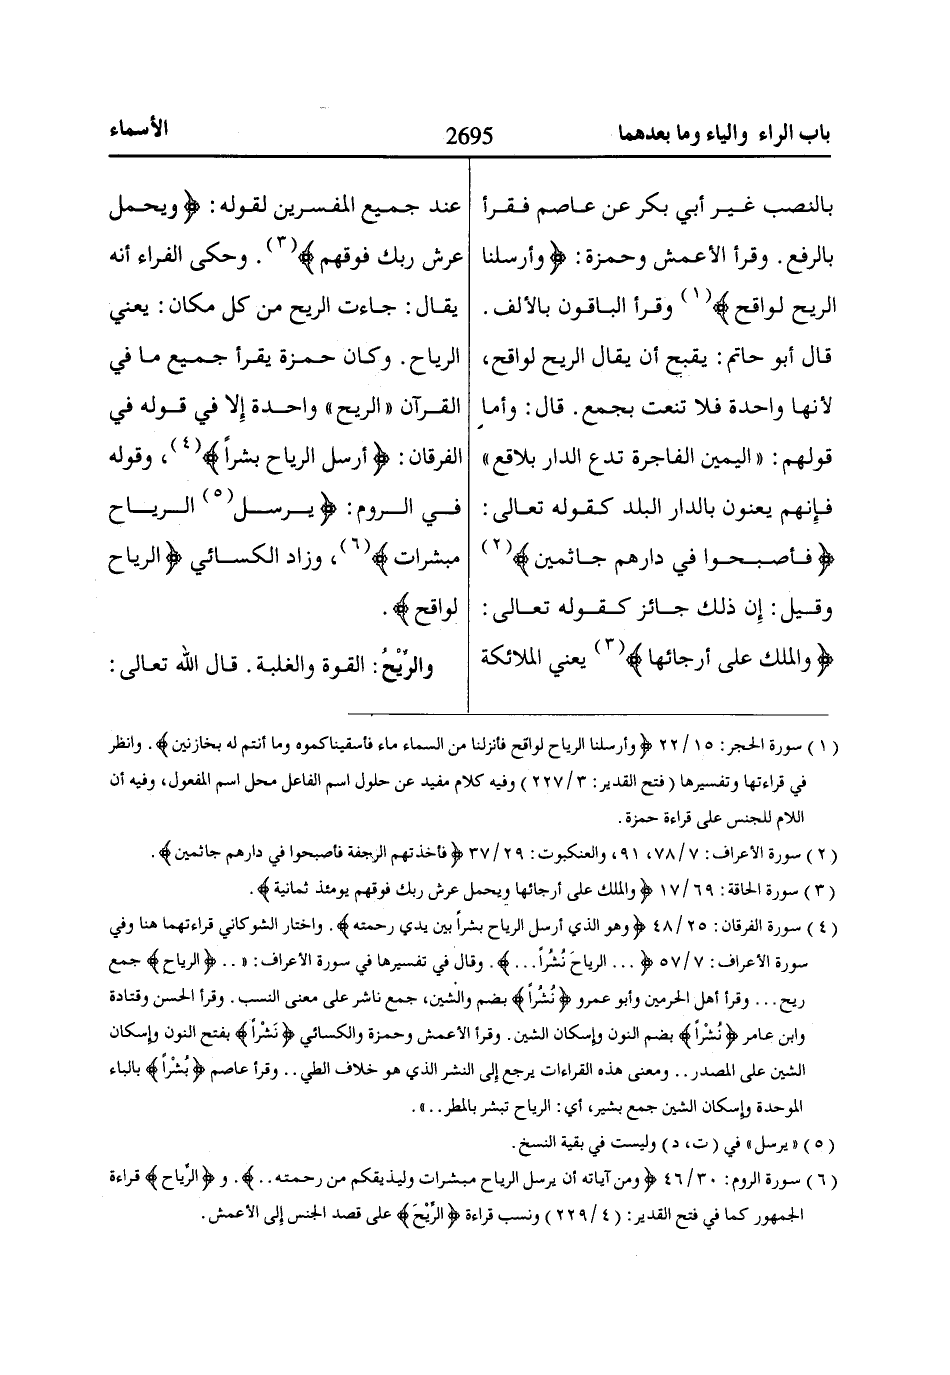 باب الراء والياء وما بعدهما
2695
الأسماء
بالنصب غير أبي بكر عن عاصم فقرأ
بالرفع. وقرأ الأعمش وحمزة: ﴿وأرسلنا
الريح لواقح﴾(١) وقرأ الباقون بالألف.
قال أبو حاتم: يقبح أن يقال الريح لواقح،
لأنها واحدة فلا تنعت بجمع. قال: وأما
قولهم: «اليمين الفاجرة تدع الدار بلاقع»
فإنهم يعنون بالدار البلد كقوله تعالى:
﴿فأصبحوا في دارهم جاثمين﴾(٢)
وقيل: إن ذلك جائز كقوله تعالى:
﴿والملك على أرجائها﴾(٣) يعني الملائكة
عند جميع المفسرين لقوله: ﴿ويحمل
عرش ربك فوقهم﴾(٣). وحكى الفراء أنه
يقال: جاءت الريح من كل مكان: يعني
الرياح. وكان حمزة يقرأ جميع ما في
القرآن «الريح» واحدة إلا في قوله في
الفرقان: ﴿أرسل الرياح بشراً﴾(٤)، وقوله
في الروم: ﴿يرسل(٥) الرياح
مبشرات﴾(٦)، وزاد الكسائي ﴿الرياح
لواقح﴾.
والرِّيْحُ: القوة والغلبة. قال الله تعالى:
(١) سورة الحجر: ٢٢/١٥ ﴿وأرسلنا الرياح لواقح فأنزلنا من السماء ماء فأسقيناكموه وما أنتم له بخازنين﴾. وانظر
في قراءتها وتفسيرها (فتح القدير: ٢٢٧/٣) وفيه كلام مفيد عن حلول اسم الفاعل محل اسم المفعول، وفيه أن
اللام للجنس على قراءة حمزة.
(٢) سورة الأعراف: ٧٨/٧، ٩١، والعنكبوت: ٣٧/٢٩ ﴿فأخذتهم الرجفة فأصبحوا في دارهم جاثمين﴾.
(٣) سورة الحاقة: ١٧/٦٩ ﴿والملك على أرجائها ويحمل عرش ربك فوقهم يومئذ ثمانية﴾.
(٤) سورة الفرقان: ٤٨/٢٥ ﴿وهو الذي أرسل الرياح بشراً بين يدي رحمته﴾. واختار الشوكاني قراءتهما هنا وفي
سورة الأعراف: ٥٧/٧ ﴿... الرياحَ نُشُراً...﴾. وقال في تفسيرها في سورة الأعراف: «.. ﴿الرياح﴾ جمع
ريح... وقرأ أهل الحرمين وأبو عمرو ﴿نُشُراً﴾ بضم والشين، جمع ناشر على معنى النسب. وقرأ الحسن وقتادة
وابن عامر ﴿نُشْراً﴾ بضم النون وإسكان الشين. وقرأ الأعمش وحمزة والكسائي ﴿نَشْراً﴾ بفتح النون وإسكان
الشين على المصدر.. ومعنى هذه القراءات يرجع إلى النشر الذي هو خلاف الطي.. وقرأ عاصم ﴿بُشْراً﴾ بالباء
الموحدة وإسكان الشين جمع بشير، أي: الرياح تبشر بالمطر..».
(٥) «يرسل» في (ت، د) وليست في بقية النسخ.
(٦) سورة الروم: ٤٦/٣٠ ﴿ومن آياته أن يرسل الرياح مبشرات وليذيقكم من رحمته..﴾. و﴿الرِّياح﴾ قراءة
الجمهور كما في فتح القدير: (٢٢٩/٤) ونسب قراءة ﴿الرِّيْحَ﴾ على قصد الجنس إلى الأعمش.